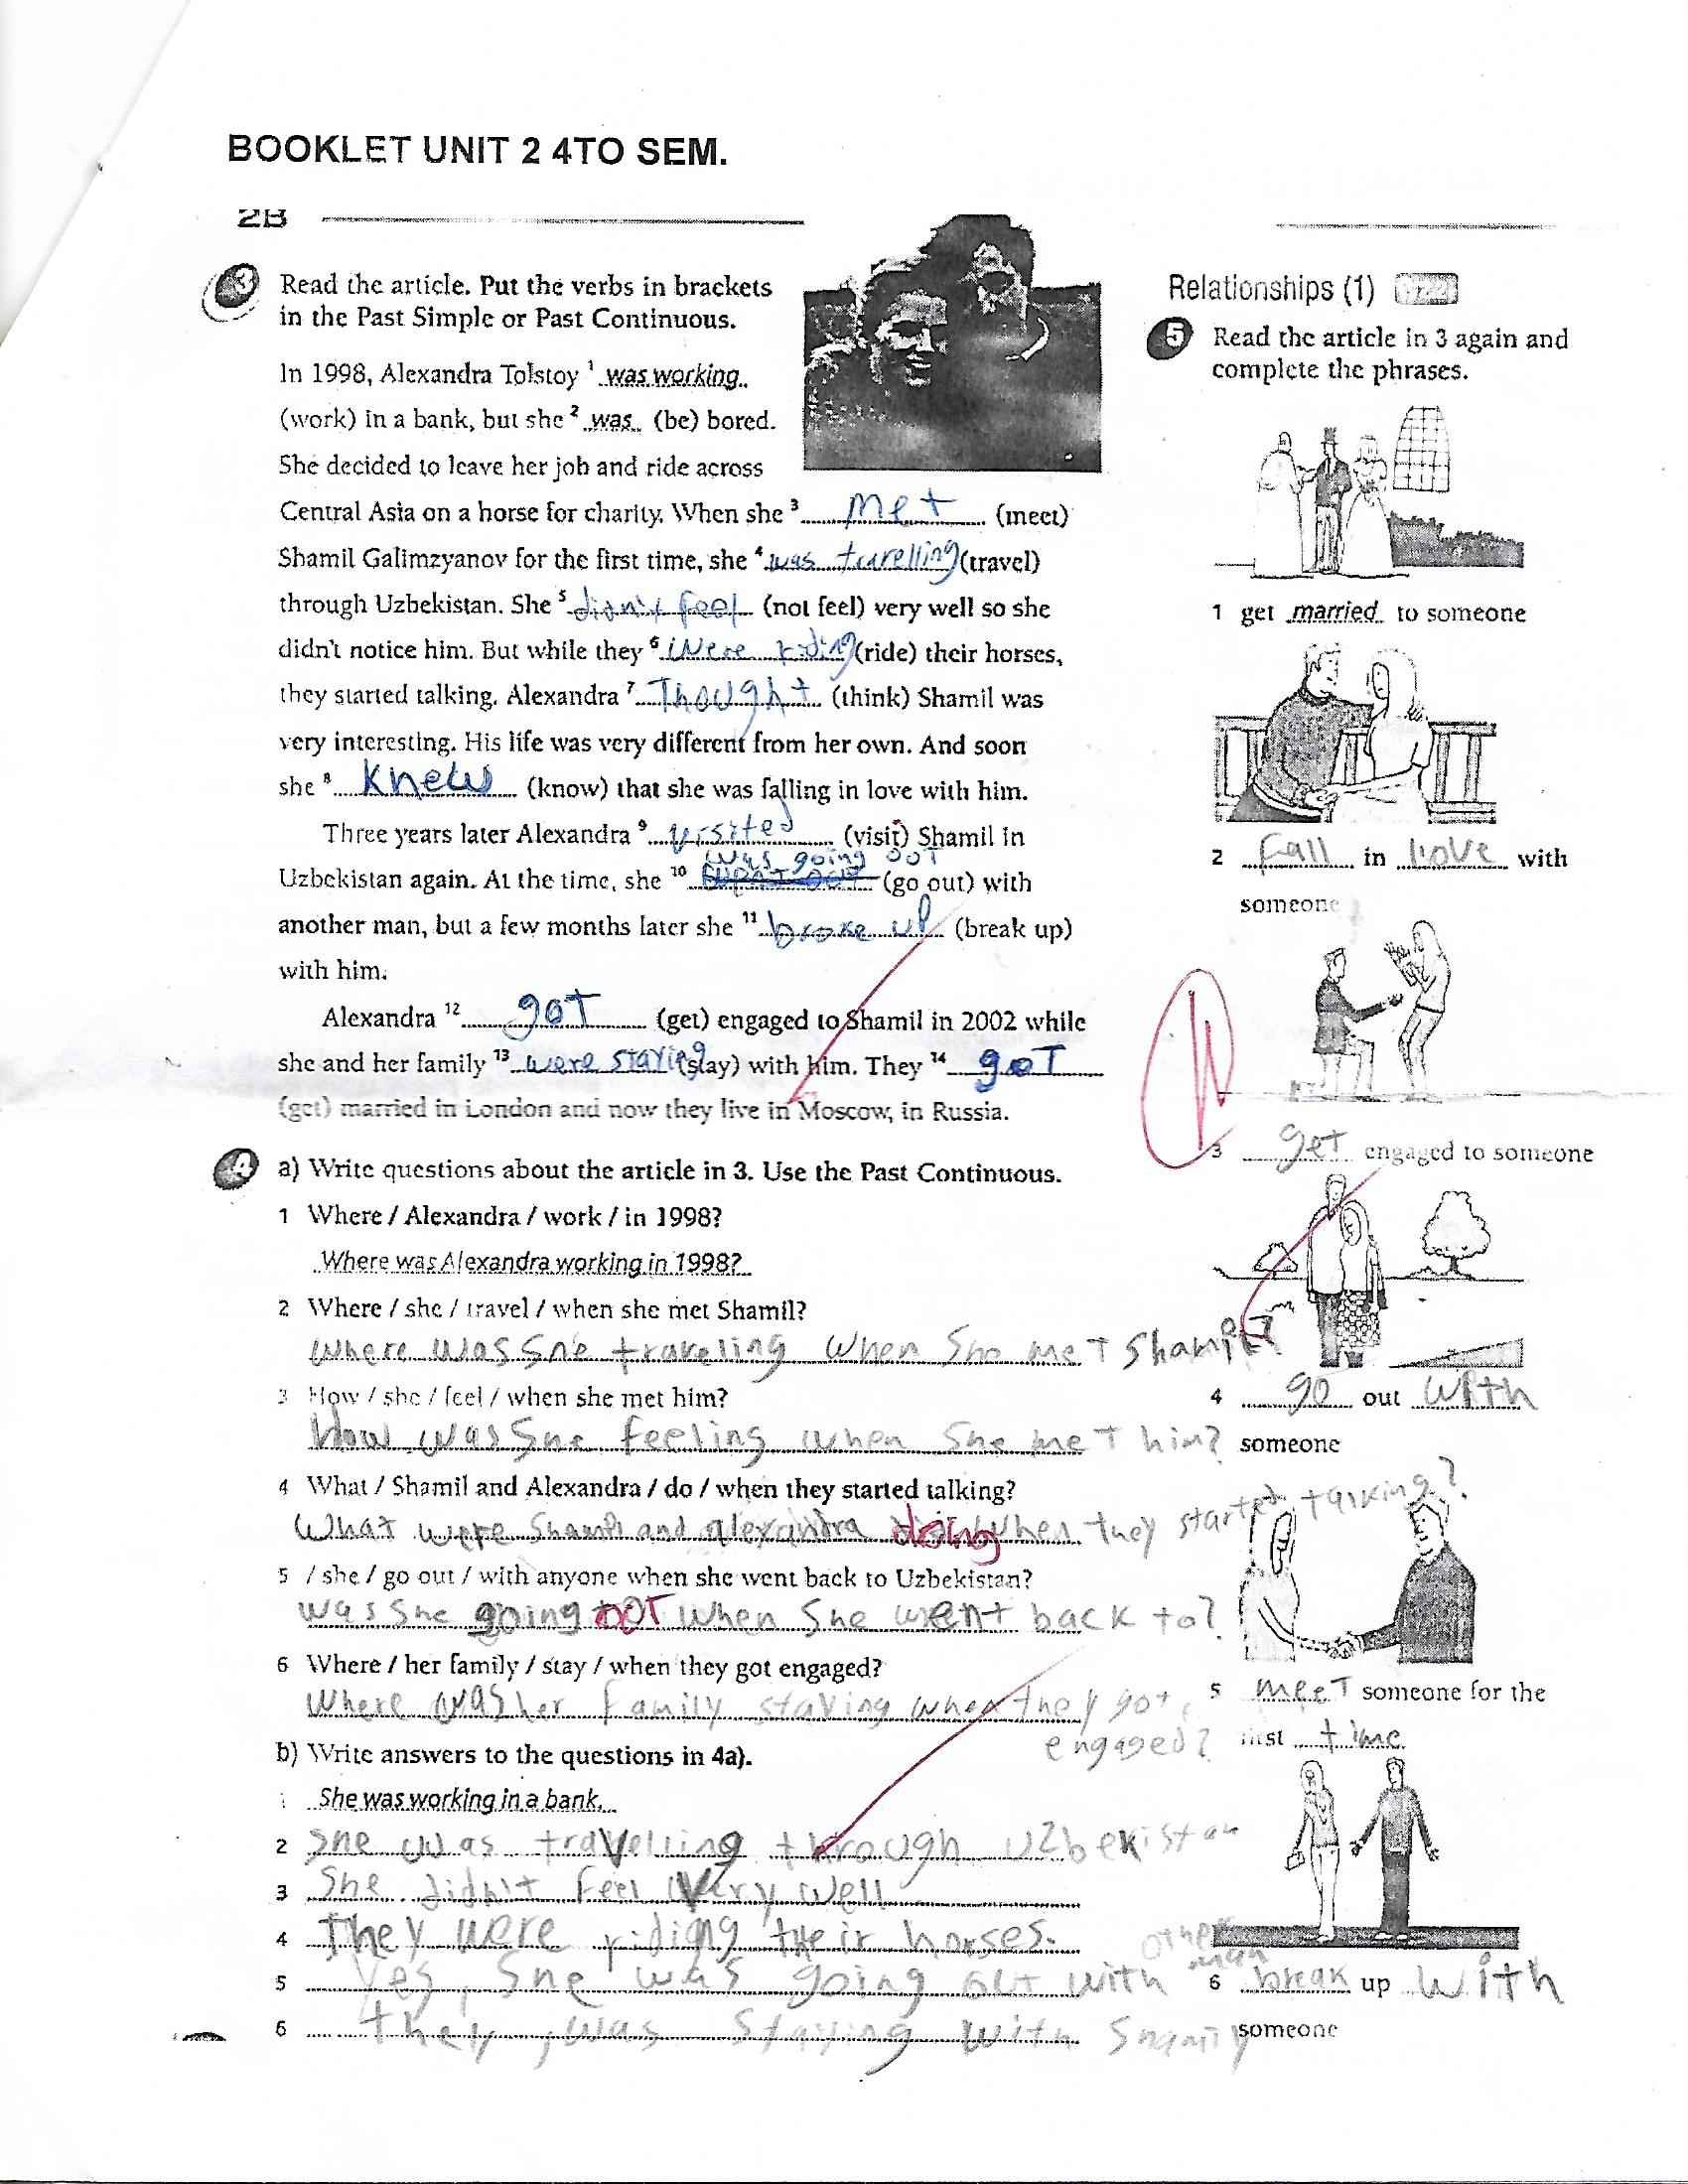 BOOKLET UNIT 2 4TO SEM.
2B
3 Read the article. Put the verbs in brackets
in the Past Simple or Past Continuous.
In 1998, Alexandra Tolstoy 1 was working
(work) in a bank, but she 2 was (be) bored.
She decided to leave her job and ride across
Central Asia on a horse for charity. When she 3 met (meet)
Shamil Galimzyanov for the first time, she 4 was turelling (travel)
through Uzbekistan. She 5 didn't feel (not feel) very well so she
didn't notice him. But while they 6 were riding (ride) their horses,
they started talking. Alexandra 7 Thought (think) Shamil was
very interesting. His life was very different from her own. And soon
she 8 knew (know) that she was falling in love with him.
Three years later Alexandra 9 visited (visit) Shamil in
was going out
Uzbekistan again. At the time, she 10 (go out) with
another man, but a few months later she 11 broke up (break up)
with him.
Alexandra 12 got (get) engaged to Shamil in 2002 while
she and her family 13 were staying (stay) with him. They 14 got
(get) married in London and now they live in Moscow, in Russia.
4 a) Write questions about the article in 3. Use the Past Continuous.
1 Where / Alexandra / work / in 1998?
Where was Alexandra working in 1998?
2 Where / she / travel / when she met Shamil?
Where was she traveling when she met Shamil?
3 How / she / feel / when she met him?
How was she feeling when she met him?
4 What / Shamil and Alexandra / do / when they started talking?
What were Shamil and alexandra doing when they started talking?
5 / she / go out / with anyone when she went back to Uzbekistan?
was she going out when she went back to?
6 Where / her family / stay / when they got engaged?
Where was her family staying when they got
engaged?
b) Write answers to the questions in 4a).
1 She was working in a bank.
2 she was travelling through Uzbekistan
3 She didn't feel very well
4 They were ridigng their horses.
5 Yes, she was going out with other man
6 they, was staying with Shamil
Relationships (1)
5 Read the article in 3 again and
complete the phrases.
1 get married to someone
2 fall in love with
someone
3 get engaged to someone
4 go out with
someone
5 meet someone for the
first time
6 break up with
someone